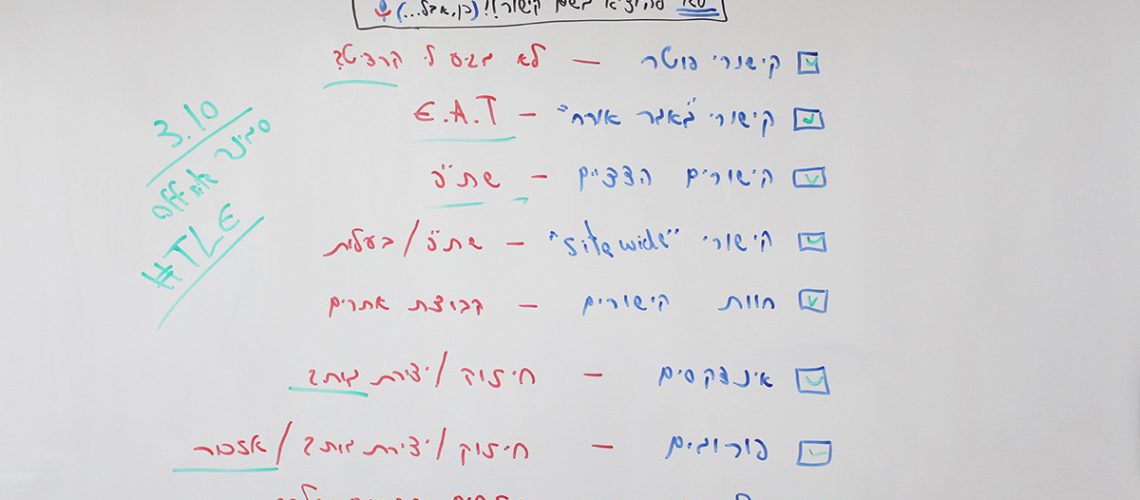 קישור!! (כן, אבל...)
קישורי פוטר – לא מגיע לי קרדיט?
קישורי "מאמר אורח" – E.A.T
קישורים הדדיים – שת"פ
קישורי "sitewide" – שת"פ / בעלות
חוות קישורים – קבוצת אתרים
אינדקסים – חיזוק / יצירת מותג
פורומים – חיזוק / יצירת מותג / אזכור
3.10
וובינר
#TLE